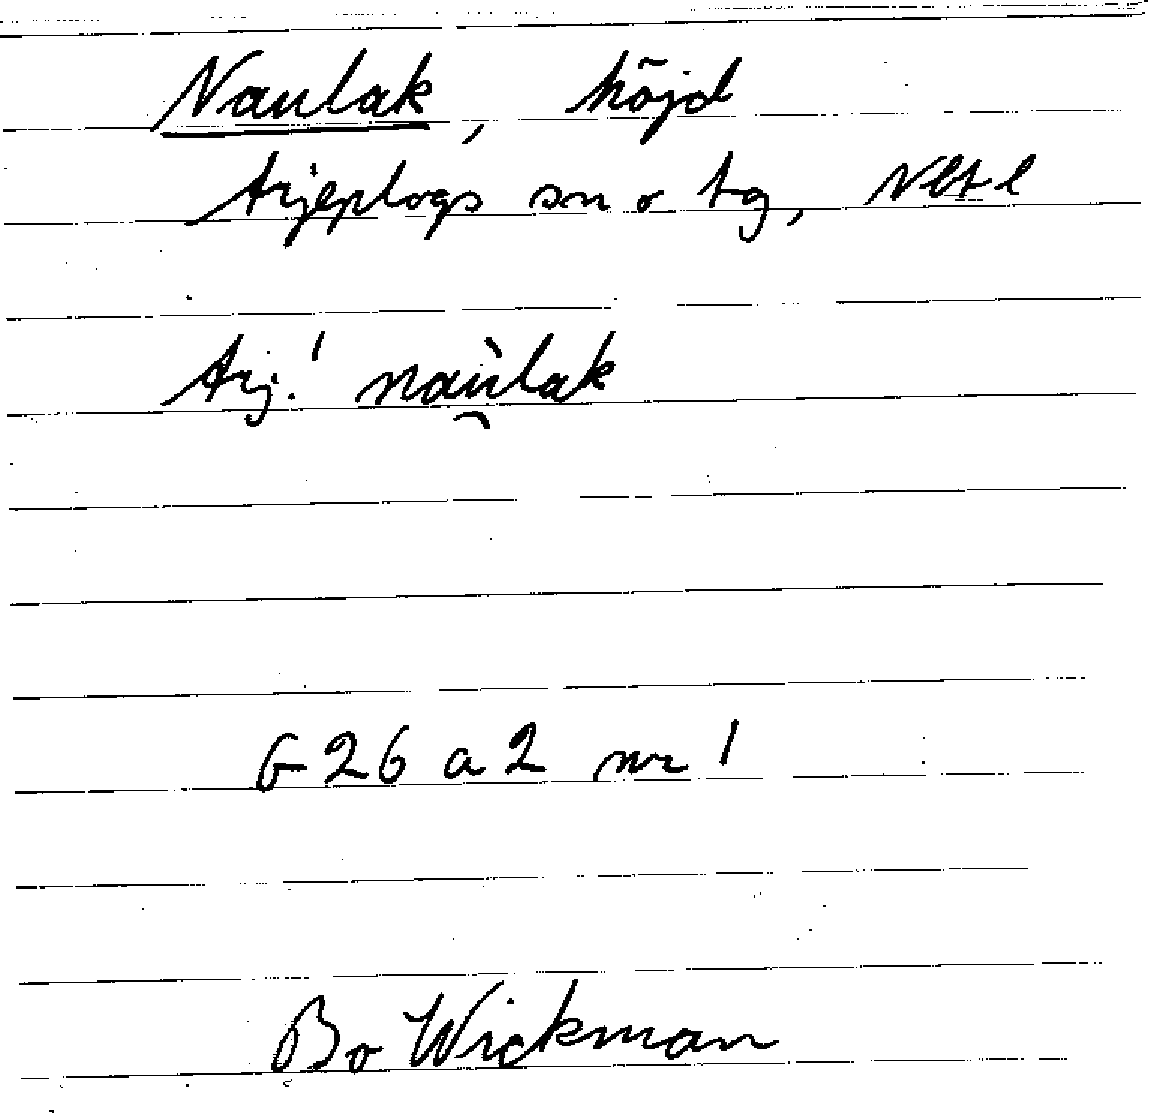 Naulak, höjd
Arjeplogs sn o tg, Vbtl
Arj.ˈ naù̯lak
G 26 a 2 nr 1
Bo Wickman